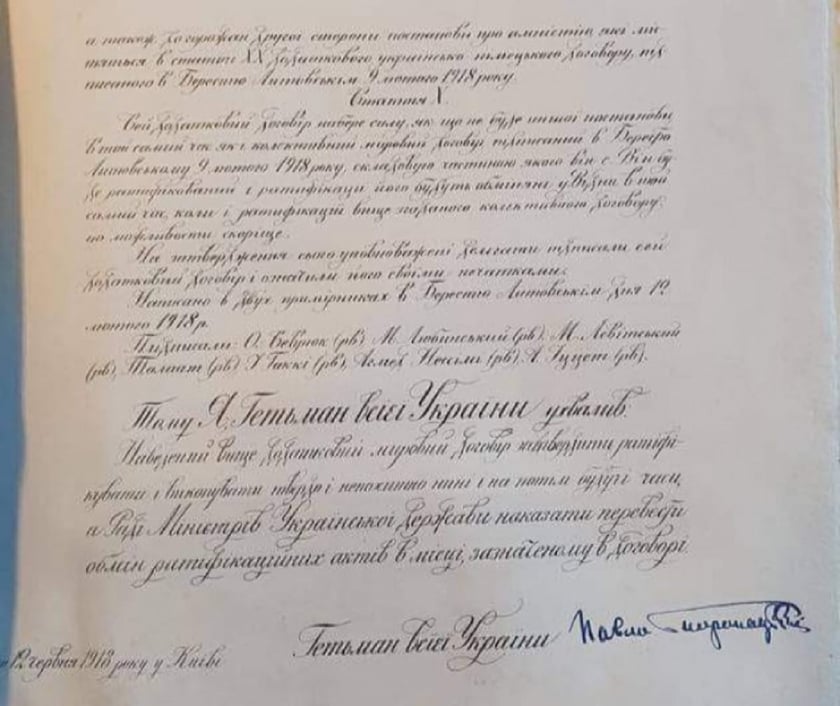 а також до горожан другої сторони постанови про амністію, які міс-
тяться в статті XX додаткового українсько-німецького договору, під-
писаного в Берестю Литовськім 9 лютого 1918 року.
Стаття X.
Сей додатковий договір набере сили, як що не буде иншої постанови,
в той самий час як і колективний мировий договір, підписаний в Берестю
Литовському 9 лютого 1918 року, складовою частиною якого він є. Він бу-
де ратифікований і ратифікації його будуть обміняні у Відни в той
самий час, коли і ратифікації вище згаданого колективного договору,
по можливости скоріше.
На затвердження сього уповноважені делегати підписали сей
додатковий договір і означили його своїми печатками.
Написано в двух примірниках в Берестю Литовськім дня 12
лютого 1918 р.
Підписали: О. Севрюк (рв), М. Любинський (рв), М. Левітський
(рв), Талаат (рв), І. Гаккі (рв), Ахмед Нессімі (рв), А. Іззет (рв).
Тому Я, Гетьман всієї України ухвалив:
Наведений вище додатковий мировий договір затвердити ратифі-
кувати і виконувати твердо і непохитно нині і на потім будучі часи,
а Раді Міністрів Української Держави наказати перевести
обмін ратифікаційних актів в місці, зазначеному в договорі.
Гетьман всієї України Павло Скоропадський
12 червня 1918 року у Київі